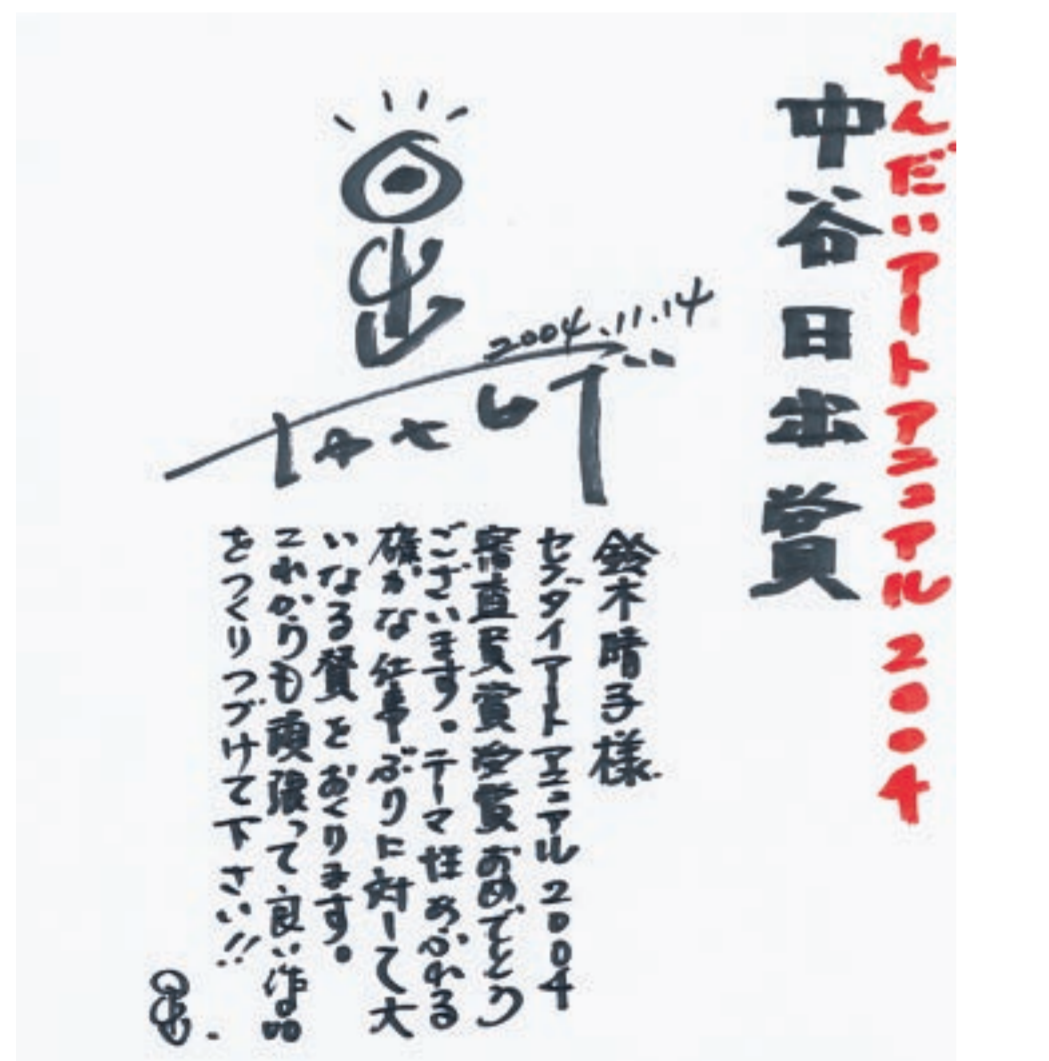 せんだいアートアニュアル2004
中谷日出賞
2004.11.14
鈴木晴子様
センダイアートアニュアル2004
審査員賞受賞おめでとう
ございます。テーマ性あふれる
確かな仕事ぶりに対して大
いなる賛をおくります。
これからも頑張って良い作品
をつくりつづけて下さい!!